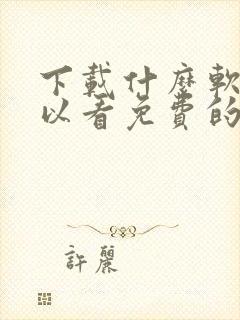 下載什麼軟
以看免費的
許麗